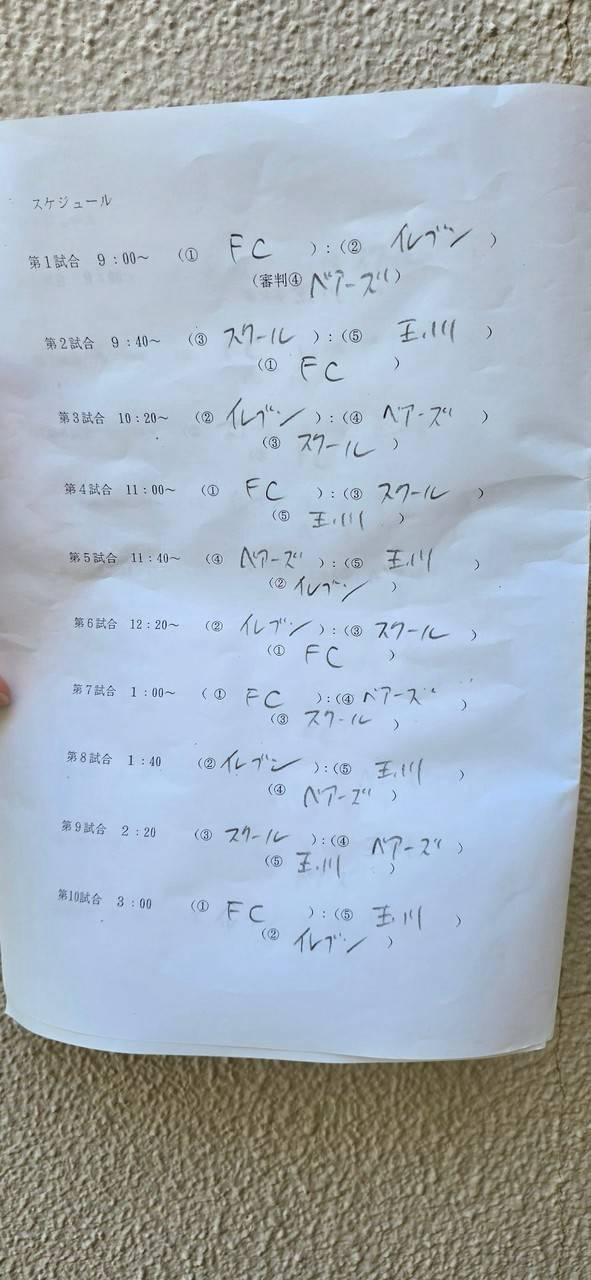 スケジュール
第1試合 9:00~ (① FC ):(② イレブン )
(審判④ ベアーズ )
第2試合 9:40~ (③ スクール ):(⑤ 玉川 )
(① FC )
第3試合 10:20~ (② イレブン ):(④ ベアーズ )
(③ スクール )
第4試合 11:00~ (① FC ):(③ スクール )
(⑤ 玉川 )
第5試合 11:40~ (④ ベアーズ ):(⑤ 玉川 )
(② イレブン )
第6試合 12:20~ (② イレブン ):(③ スクール )
(① FC )
第7試合 1:00~ (① FC ):(④ ベアーズ )
(③ スクール )
第8試合 1:40 (② イレブン ):(⑤ 玉川 )
(④ ベアーズ )
第9試合 2:20 (③ スクール ):(④ ベアーズ )
(⑤ 玉川 )
第10試合 3:00 (① FC ):(⑤ 玉川 )
(② イレブン )